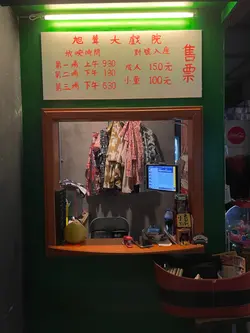 旭聲大戲院
放映時間 對號入座
第一場 上午 930 成人 150元
第二場 下午 130 小童 100元
第三場 下午 630
售票